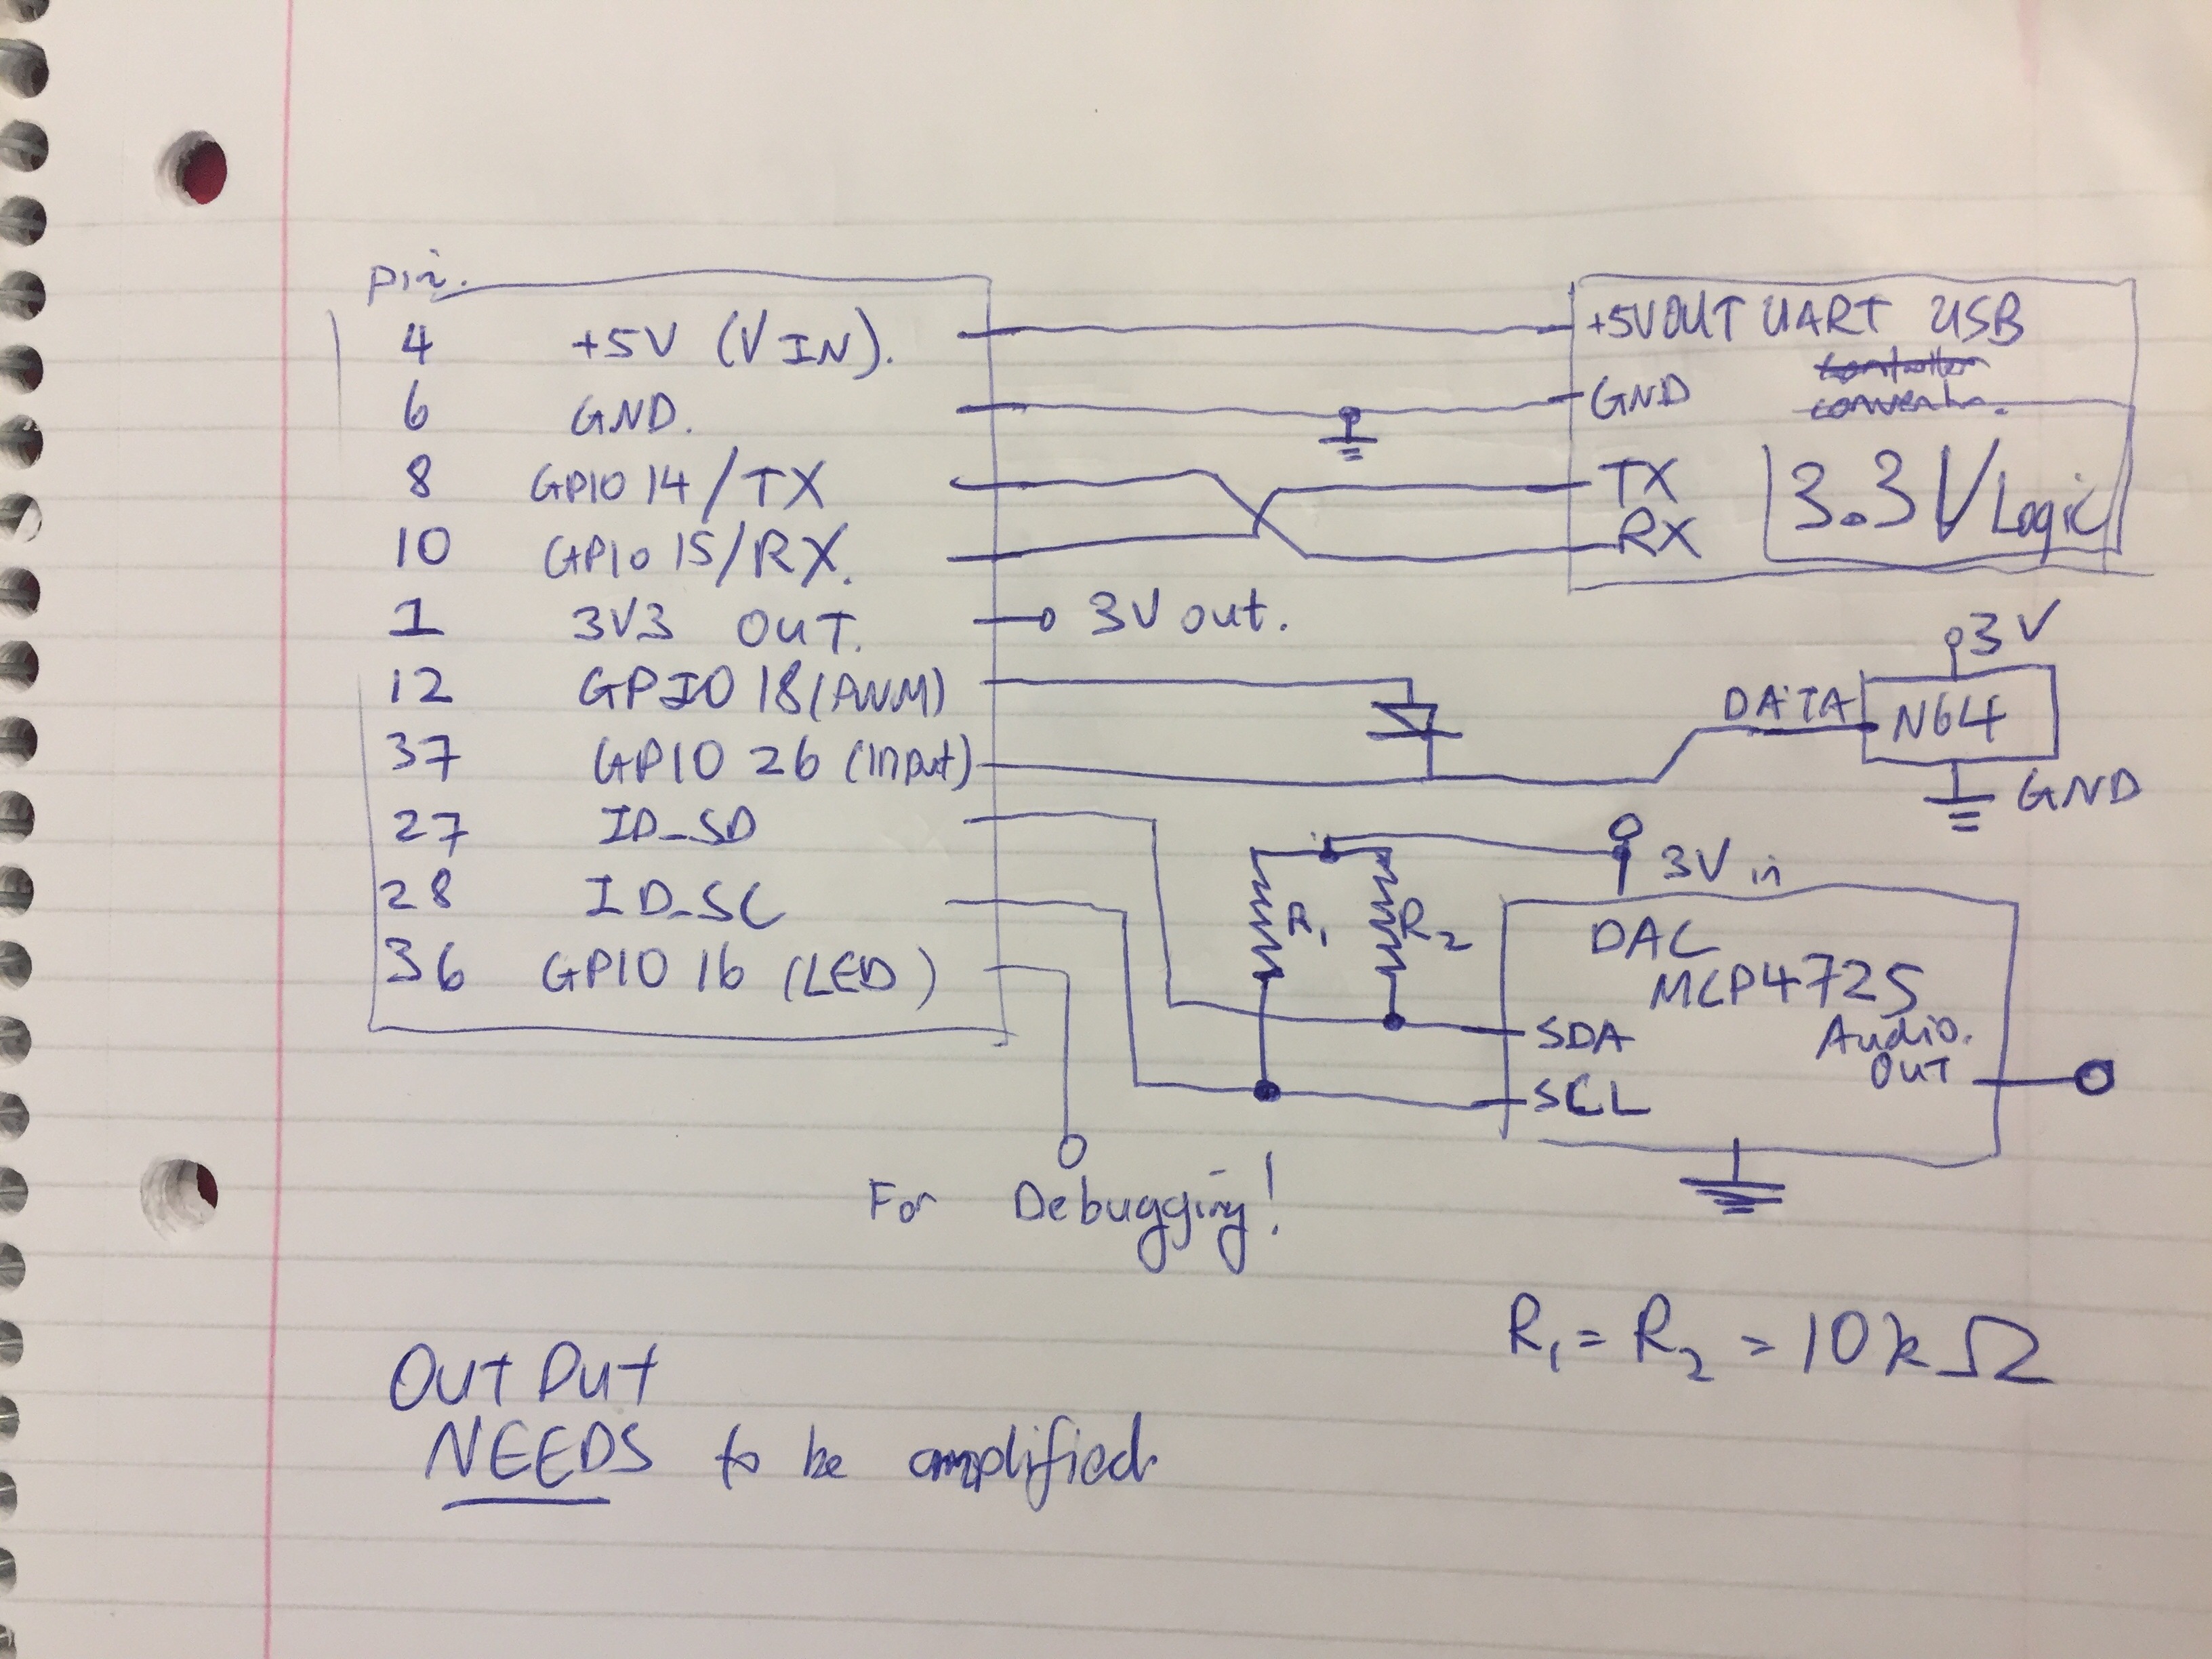 pin.
4 +5V (VIN).
6 GND.
8 GPIO 14/TX
10 GPIO 15/RX.
1 3V3 OUT.
12 GPIO 18 (PWM)
37 GPIO 26 (Input)
27 ID_SD
28 ID_SC
36 GPIO 16 (LED)
+5VOUT UART USB
GND
TX
RX
3.3V Logic
3V out.
3V
DATA N64
GND
3V in
R1 R2
DAC
MCP4725
Audio.
OUT
SDA
SCL
For Debugging!
R1 = R2 = 10kΩ
OUTPUT
NEEDS to be amplified